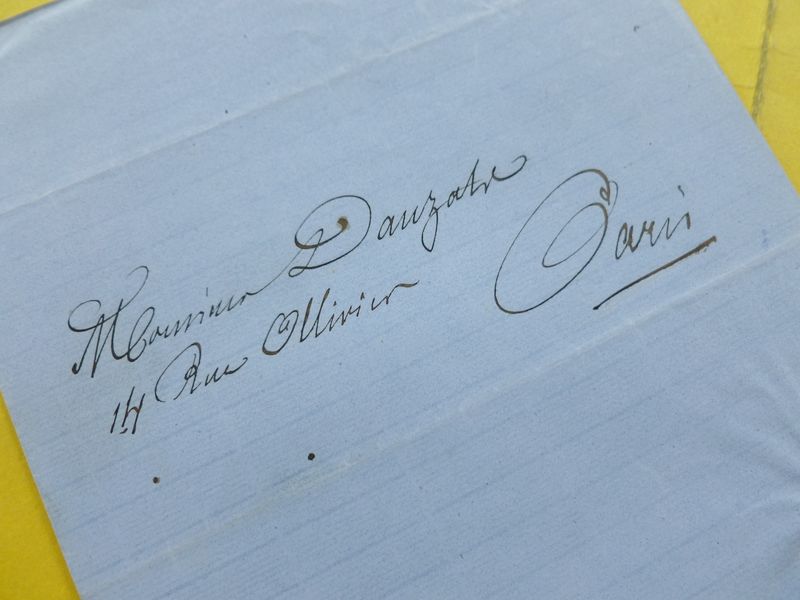 Monsieur Danzats
14 Rue Ollivier Paris